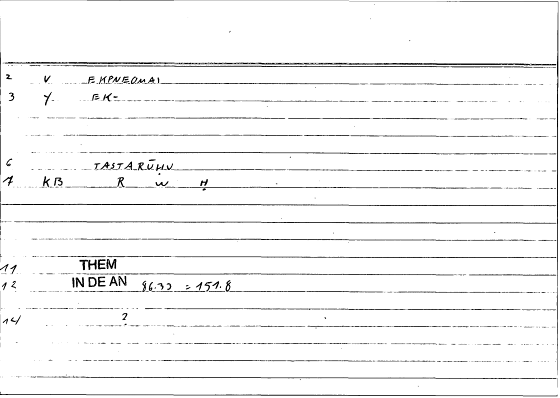 2 V EKPNEOMAI
3 Y. EK-
6 TASTARŪḤU
7 KB R W Ḥ
11 THEM
12 IN DE AN 86.32 = 151.8
14 ?